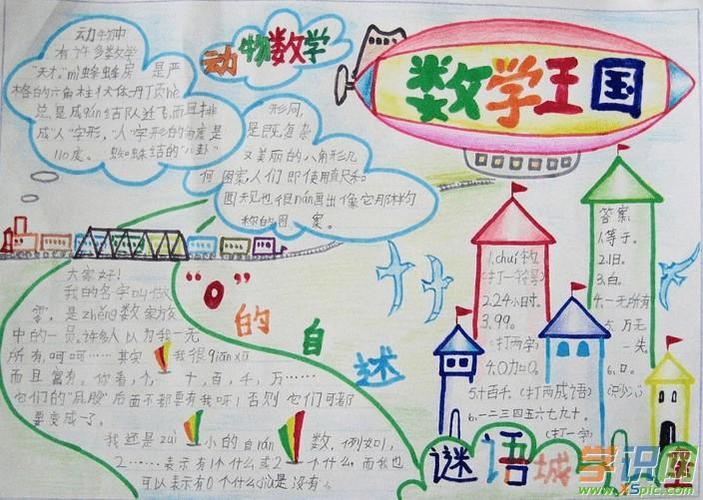 动物中
有许多数学
"天才"mì蜂蜂房 是严
格的六角柱状体丹顶hè
总是成qún结队迁飞,而且排
成"人"字形,"人"字形的角度是
110度。 蜘蛛结的"八卦"
动物数学
形网,
是既复杂
又美丽的八角形几
何图案,人们即使用直尺和
圆规也很nán画出像它那样匀
称的图 案。
数学王国
大家好!
我的名字叫做
零,是zhěng数家族
中的一员。许多人以为我一无
所有,呵呵…… 其实 我很qiān xū
而且富有。你看,个、十,百,千,万……
它们的"屁股"后面不都要有我呀!否则它们可都
要变成1了。
我还是zuì小的自rán数,例如1、
2……表示有1个什么或2个什么,而我也
可以表示有0个什么jiù是没有。
"0"的自述
1.chuí构
(打一符号)
2.24小时。
3.99。
(打两字)
4.0000。
5.十百千。(打两成语)
6.一二三四五六七九十。
(打一字)
答案
1.等于。
2.旧。
3.白。
4.一无所有
5.万无
一失。
6.口。
(识少心)
谜语城堡
学识网
www.xspic.com